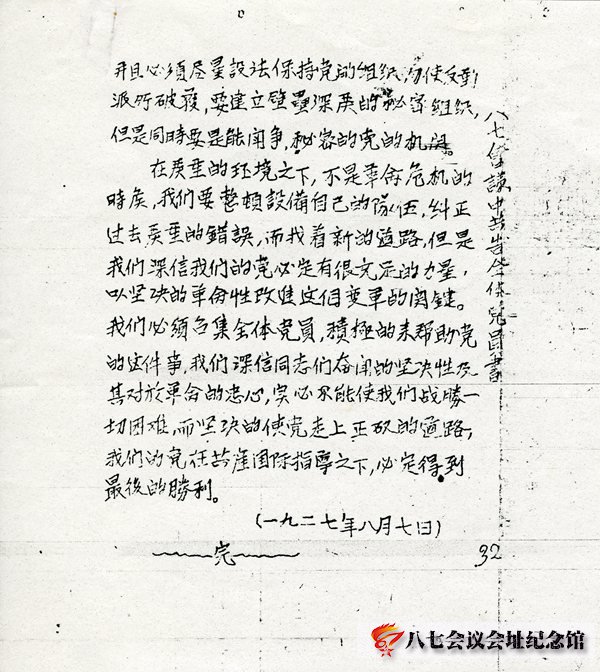 并且必須尽量設法保持党的組織,勿使反動
派所破獲,要建立堅壘深裘的秘密組织,
但是同時要是能鬥争,秘密的党的机関
在严重的环境之下,不是革命危机的
時矣,我們要整頓設備自己的隊伍,糾正
过去严重的錯誤,而找着新的道路,但是
我們深信我們的党必定有很充足的力量,
以坚决的革命性改進这個变革的関鍵。
我們必須召集全体党員,積極的来帮助党
的这件事,我們深信同志們奋鬥的坚决性及
其对於革命的忠心,实必不能使我們战勝一
切困难,而坚决的使党走上正确的道路,
我們的党在共產国际指導之下,必定得到
最後的勝利。
(一九二七年八月七日)
完
32
八七會議中共告全体党員書
八七会议会址纪念馆